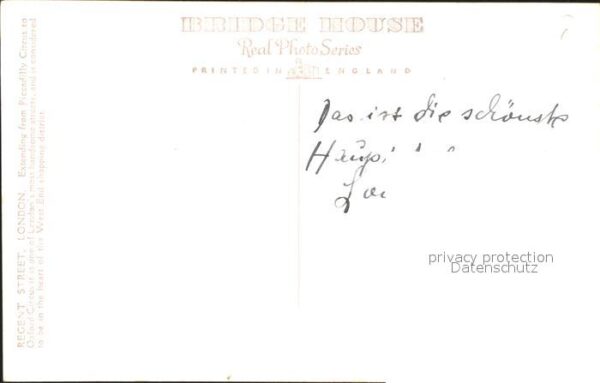 BRIDGE HOUSE
Real Photo Series
PRINTED IN ENGLAND
Das ist die schönste
privacy protection
Datenschutz
REGENT STREET, LONDON. Extending from Piccadilly Circus to
Oxford Circus it is one of London's most handsome streets, and is considered
to be in the heart of the West End shopping district.